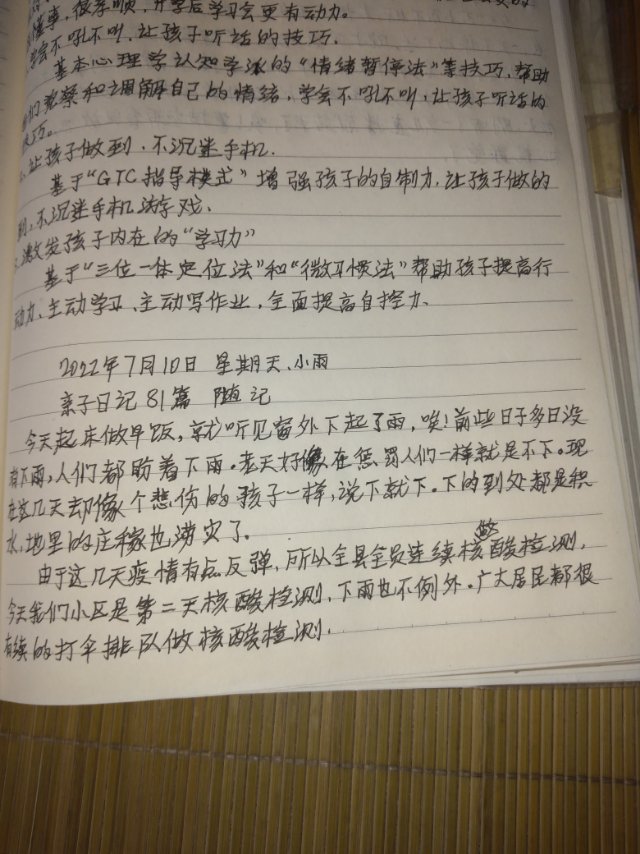 懂事，很孝顺，开学后学习会更有动力。
学会不吼不叫，让孩子听话的技巧.
基本心理学认知学派的“情绪暂停法”等技巧.帮助
我们观察和调解自己的情绪，学会不吼不叫，让孩子听话的
技巧。
让孩子做到.不沉迷手机.
基于“GTC指导模式”增强孩子的自制力.让孩子做的
到.不沉迷手机游戏.
激发孩子内在的“学习力”
基于“三位一体定位法”和“微习惯法”帮助孩子提高行
动力、主动学习、主动写作业，全面提高自控力.
2022年7月10日 星期天.小雨
亲子日记81篇 随记
今天起床做早饭，就听见窗外下起了雨，唉！前些日子多日没
有下雨，人们都盼着下雨。老天好像在惩罚人们一样就是不下。现
在这几天却像个悲伤的孩子一样，说下就下。下的到处都是积
水，地里的庄稼也涝灾了。
由于这几天疫情有点反弹，所以全县全员连续核酸检测，
今天我们小区是第二天核酸检测，下雨也不例外。广大居民都很
有续的打伞排队做核酸检测.